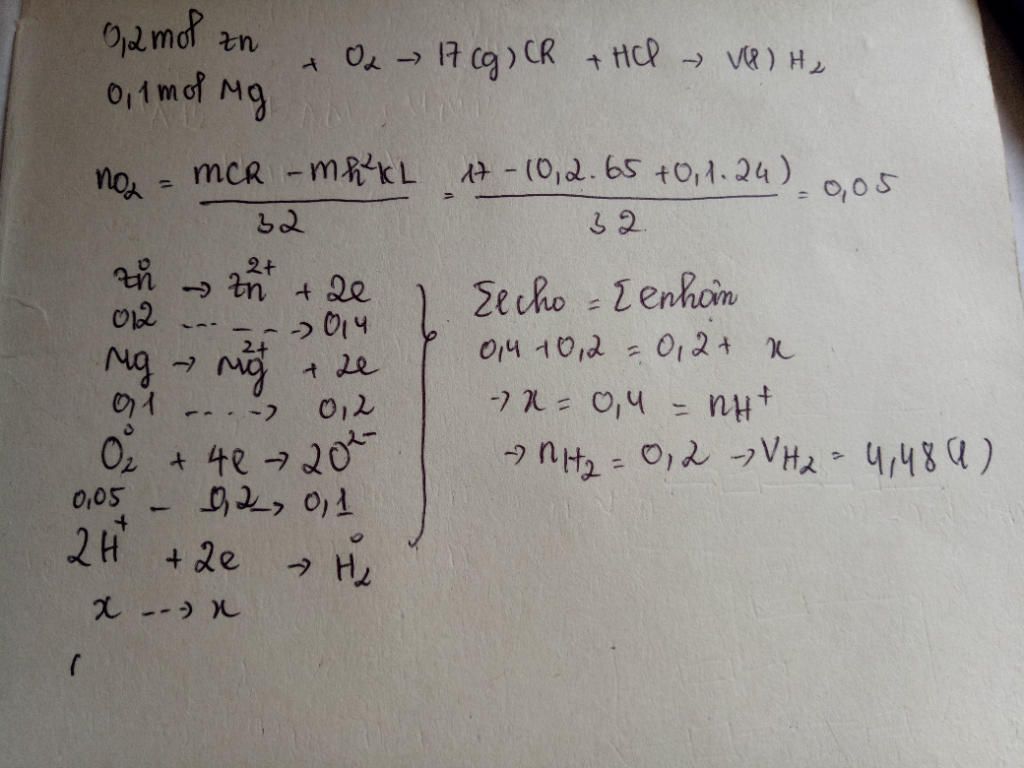 0,2 mol Zn
0,1 mol Mg
+ O₂ → 17 (g) CR + HCl → V(l) H₂
nO₂ = (mCR - mh²KL)/32 = (17 - (0,2.65 + 0,1.24))/32 = 0,05
Zn⁰ → Zn²⁺ + 2e
0,2 ---- → 0,4
Mg → Mg²⁺ + 2e
0,1 ----→ 0,2
O₂⁰ + 4e → 2O²⁻
0,05 - 0,2 → 0,1
2H⁺ + 2e → H₂⁰
x ---→ x
Σecho = Σenhận
0,4 + 0,2 = 0,2 + x
→ x = 0,4 = nH⁺
→ nH₂ = 0,2 → VH₂ = 4,48 (l)